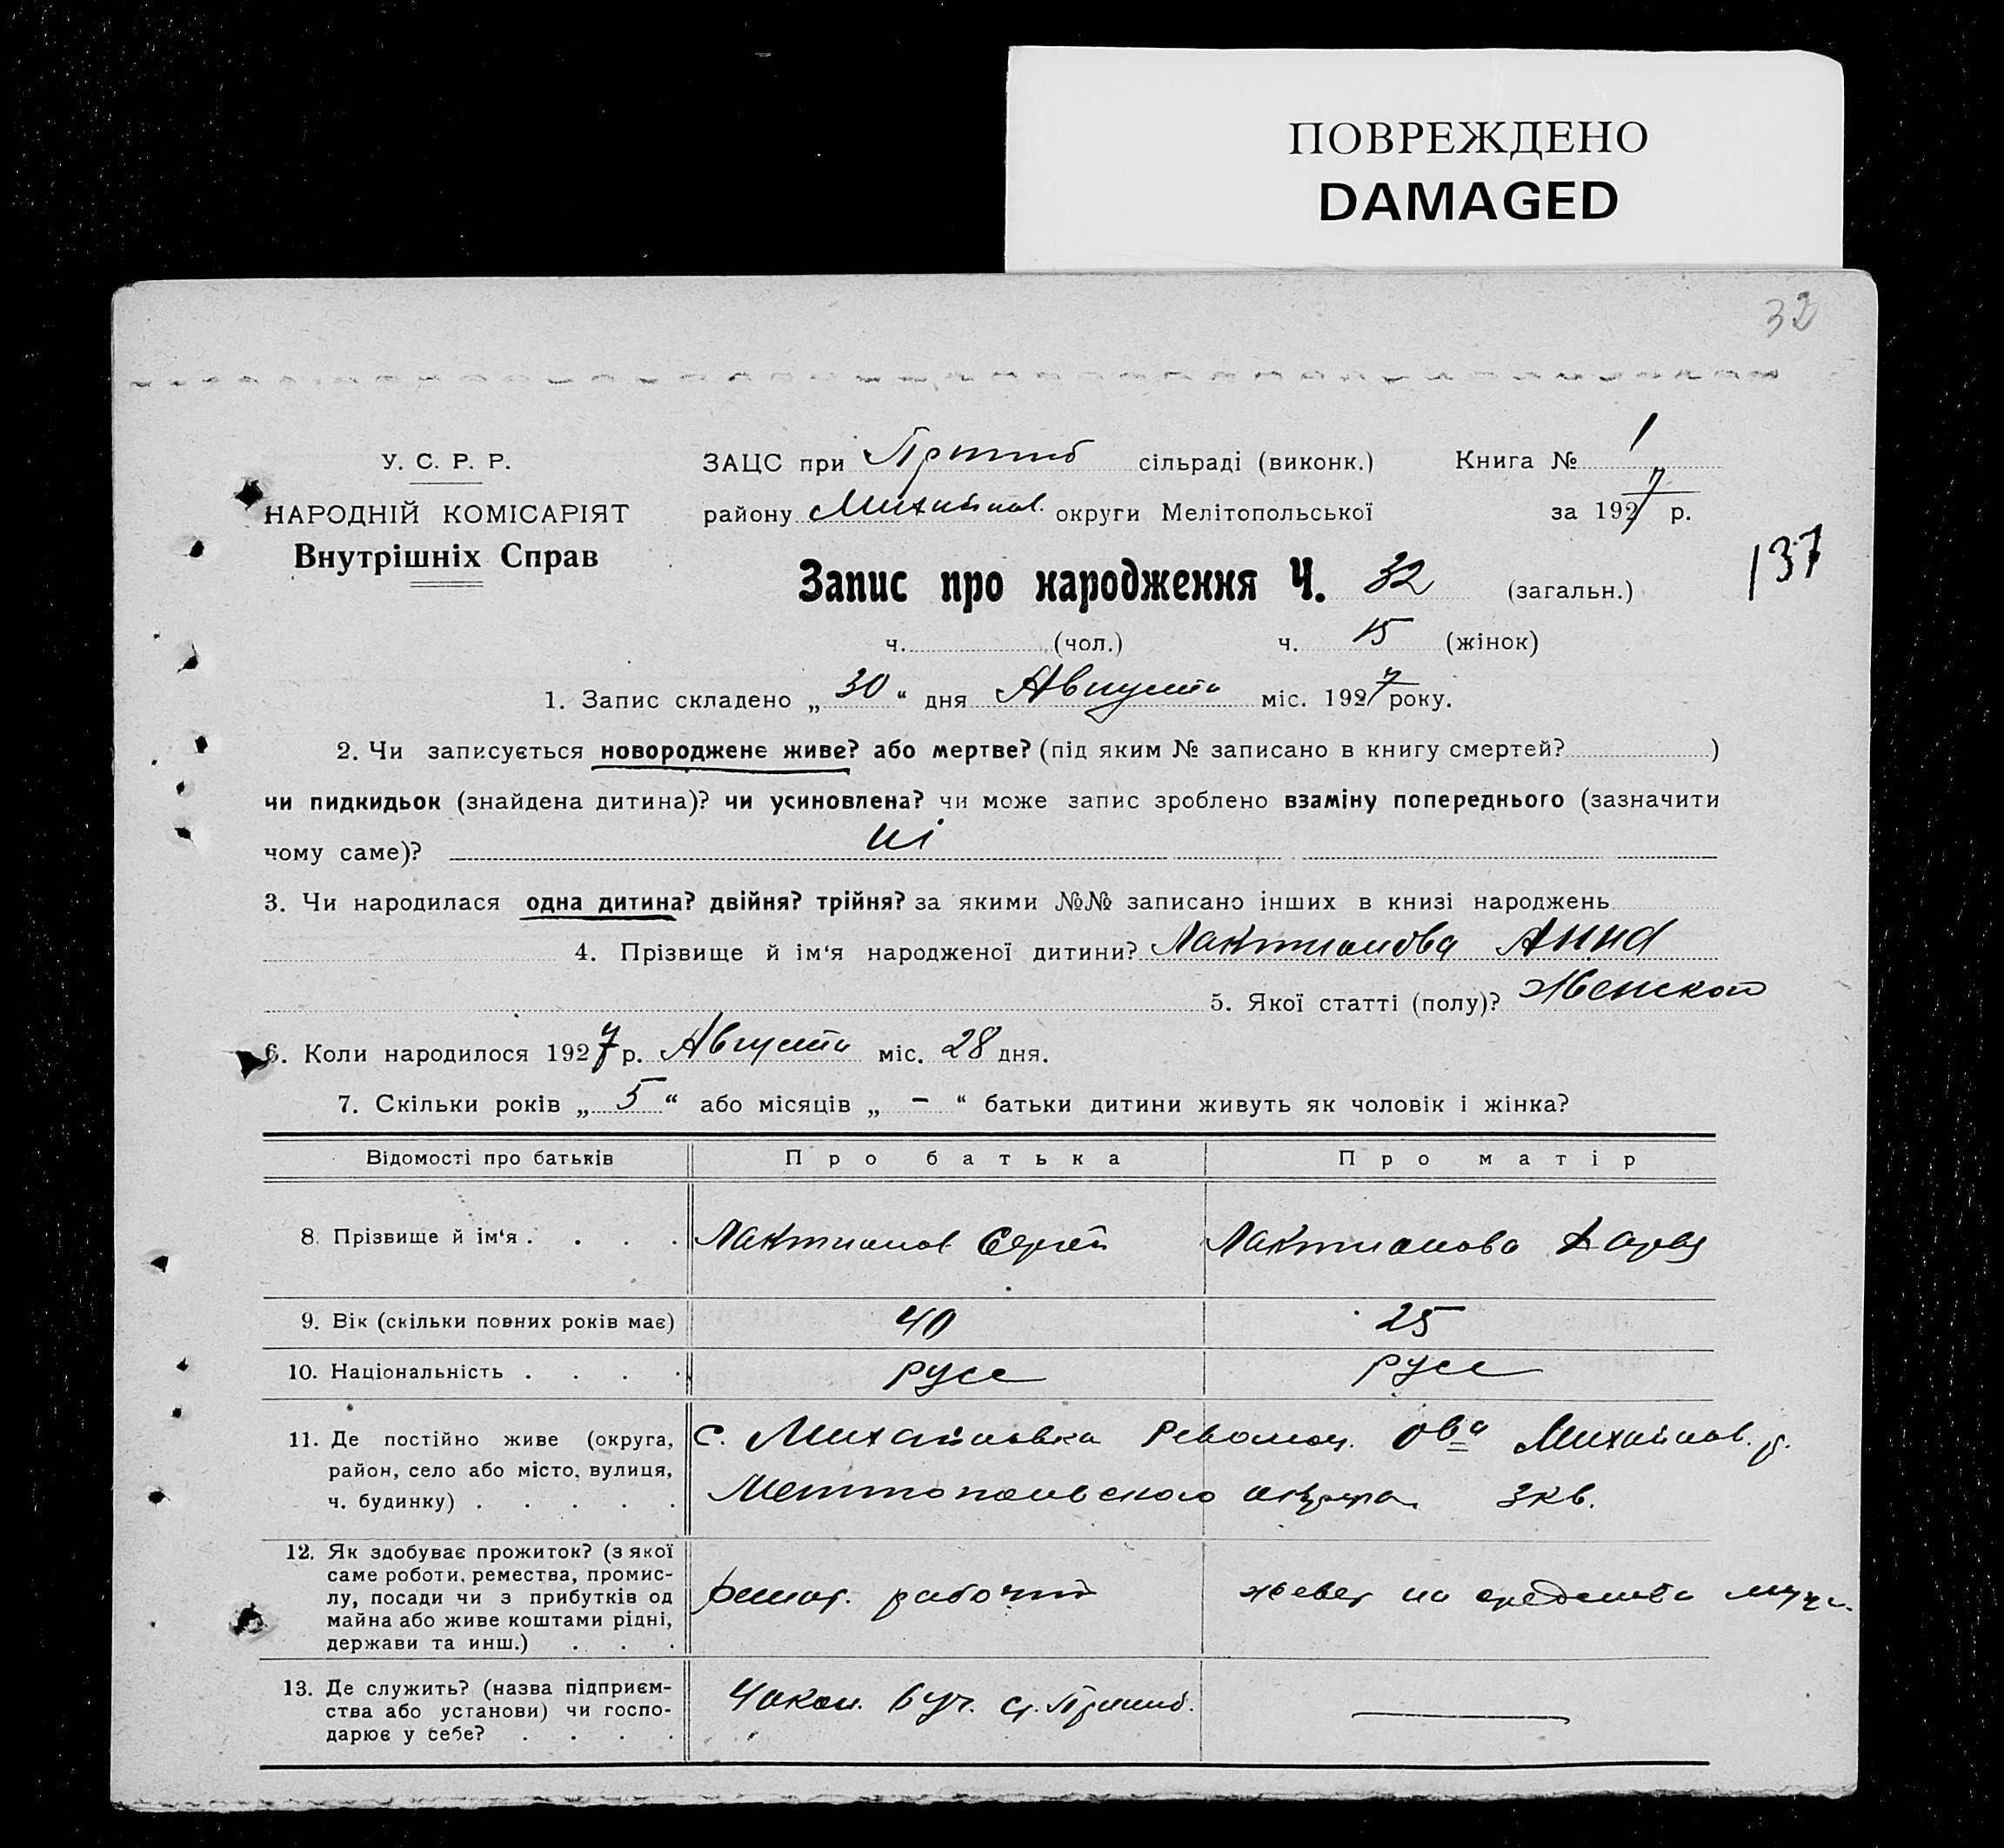 ПОВРЕЖДЕНО
DAMAGED
32
У. С. Р. Р.
НАРОДНІЙ КОМІСАРІЯТ
Внутрішніх Справ
ЗАЦС при Пришиб сільраді (виконк.) Книга № 1
району Михайлов. округи Мелітопольської за 1927 р.
137
Запис про народження Ч. 32 (загальн.)
ч. (чол.) ч. 15 (жінок)
1. Запис складено „30“ дня Августа міс. 1927 року.
2. Чи записується новороджене живе? або мертве? (під яким № записано в книгу смертей? )
чи пидкидьок (знайдена дитина)? чи усиновлена? чи може запис зроблено взаміну попереднього (зазначити
чому саме)? ні
3. Чи народилася одна дитина? двійня? трійня? за якими №№ записано інших в книзі народжень
4. Прізвище й ім‘я народженої дитини? Лактионова Анна
5. Якої статті (полу)? Женской
6. Коли народилося 1927 р. Августа міс. 28 дня.
7. Скільки років „5“ або місяців „–“ батьки дитини живуть як чоловік і жінка?
Відомості про батьків Про батька Про матір
8. Прізвище й ім‘я . . . . Лактионов Сергей Лактионова Дарья
9. Вік (скільки повних років має) 40 25
10. Національність . . . . русс русс
11. Де постійно живе (округа,
район, село або місто, вулиця,
ч. будинку) . . . . .
с. Михайловка Революц. ова Михайлов. р.
Мелитопольского округа 3 кв.
12. Як здобуває прожиток? (з якої
саме роботи, ремества, промис-
лу, посади чи з прибутків од
майна або живе коштами рідні,
держави та инш.) . . .
рабочий
живет на средства мужа
13. Де служить? (назва підприєм-
ства або установи) чи госпо-
дарює у себе? . . . .
6 уч. ст. Пришиб.